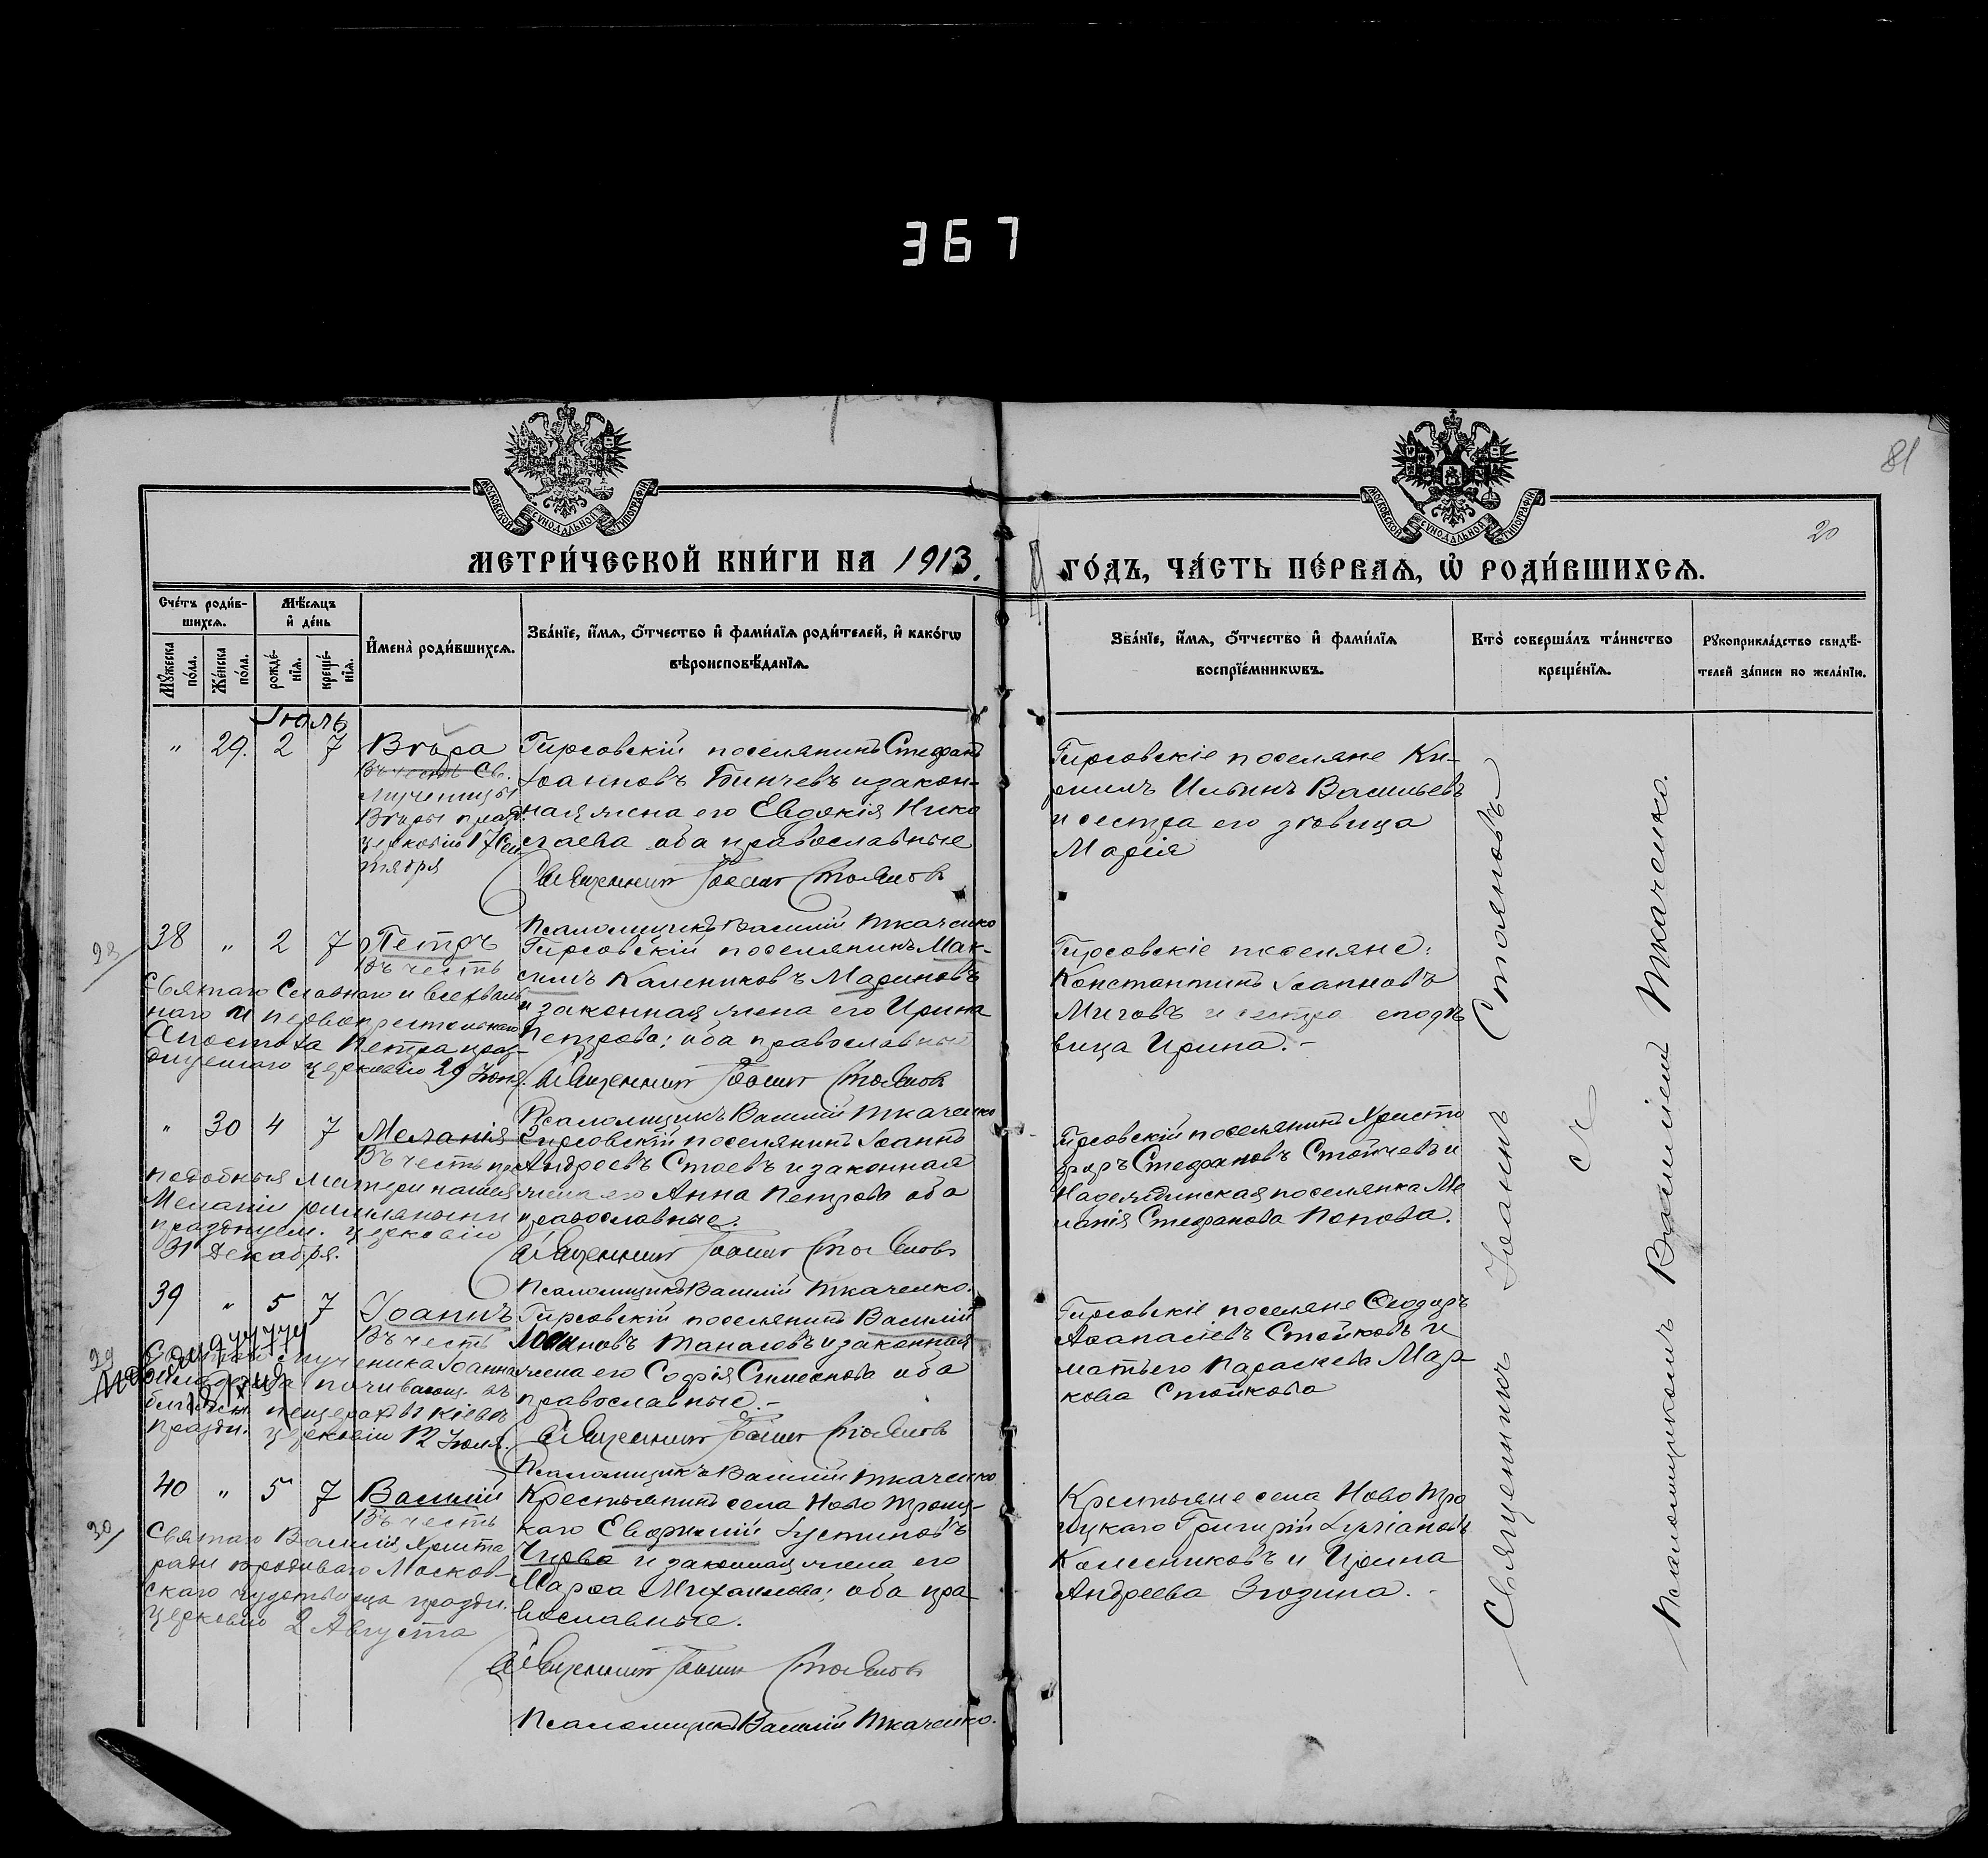 367
81
20
МОСКОВСКОЙ СѴНОДАЛЬНОЙ ТИПОГРАФІИ
МОСКОВСКОЙ СѴНОДАЛЬНОЙ ТИПОГРАФІИ
МЕТРИ́ЧЕСКОЙ КНИ́ГИ НА 1913.
ГО́ДЪ, ЧА́СТЬ ПЕ́РВАѦ, Ѡ҆ РОДИ́ВШИХСѦ.
Сче́тъ роди́в-
шихсѧ.
Мꙋ́жеска по́ла.
Же́нска по́ла.
Мѣ́сѧцъ
и҆ де́нь
рожде́-
нїѧ.
креще́-
нїѧ.
И҆мена̀ роди́вшихсѧ.
Зва́нїе, и҆́мѧ, о҆́тчество и҆ фами́лїѧ роди́телей, и҆ како́гѡ
вѣроисповѣ́данїѧ.
Зва́нїе, и҆́мѧ, о҆́тчество и҆ фами́лїѧ
воспрїе́мникѡвъ.
Кто̀ соверша́лъ та́инство
креще́нїѧ.
Рꙋкоприкла́дство свидѣ́-
телей за́писи по жела́нїю.
Іюль
" 29. 2 7 Вѣра
Въ честь Св.
мученицы
Вѣры празд.
церковію 17 Сен
тября
Гирсовскій поселянинъ Стефанъ
Іоанновъ Бинчевъ и закон-
ная жена его Евдокія Нико
лаева оба православные
Священникъ Іоаннъ Стояновъ
Псаломщикъ Василій Ткаченко
Гирсовскіе поселяне Ки-
риллъ Ильинъ Васильевъ
и сестра его дѣвица
Марія
38 " 2 7 Петръ
Въ честь
Святаго Славнаго и всехваль
наго и первопрестольнаго
Апостола Петра праз-
днуемаго церковію 29 Іюня.
Гирсовскій поселянинъ Мак-
симъ Калениковъ Мариновъ
и законная жена его Ирина
Петрова; оба православные
Священникъ Іоаннъ Стояновъ
Псаломщикъ Василій Ткаченко
Гирсовскіе поселяне:
Константинъ Іоанновъ
Миговъ и сестра его дѣ
вица Ирина.-
" 30 4 7 Меланія
Въ честь пре
подобныя матери нашея
Меланіи римляныни
празднуем. церковію
31 Декабря.
Гирсовскій поселянинъ Іоаннъ
Андреевъ Стоевъ и законная
жена его Анна Петрова оба
православные.
Священникъ Іоаннъ Стояновъ
Псаломщикъ Василій Ткаченко.
Гирсовскій поселянинъ Христо
форъ Стефановъ Стойчевъ и
Надеждинская поселянка Ме
ланія Стефанова Попова.
39 " 5 7 Іоаннъ
Въ честь
мученика Іоанна
почивающ. въ
пещерахъ Кіевѣ
праздн. церковію 12 Іюля.
Гирсовскій поселянинъ Василій
Іоанновъ Танасовъ и законная
жена его Софія Симеонова оба
православные.-
Священникъ Іоаннъ Стояновъ
Псаломщикъ Василій Ткаченко
Гирсовскіе поселяне Ѳеодоръ
Аѳанасіевъ Стойковъ и
мать его Параскева Мар-
кова Стойкова
40 " 5 7 Василій
Въ честь
Святаго Василія Христа
ради юродиваго Москов-
скаго чудотворца праздн.
церковію 2 Августа
30
Крестьянинъ села Ново Троиц-
каго Евфимій Іустиновъ
и законная жена его
Марѳа Михаилова; оба пра
вославные.
Священникъ Іоаннъ Стояновъ
Псаломщикъ Василій Ткаченко.
Крестьяне села Ново Тро
ицкаго Григорій
Колесниковъ и Ирина
Андреева Зюзина.-
Священникъ Іоаннъ Стояновъ
съ
Псаломщикомъ Василіемъ Ткаченко.